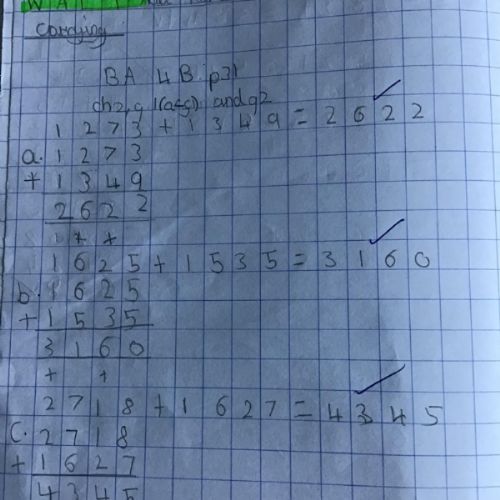 WALT
carrying
BA 4B p31
ch2, q 1(a-c) and q2
1 2 7 3 + 1 3 4 9 = 2 6 2 2
a. 1 2 7 3
+ 1 3 4 9
2 6 2 2
1 + +
1 6 2 5 + 1 5 3 5 = 3 1 6 0
b. 1 6 2 5
+ 1 5 3 5
3 1 6 0
+ +
2 7 1 8 + 1 6 2 7 = 4 3 4 5
c. 2 7 1 8
+ 1 6 2 7
4 3 4 5